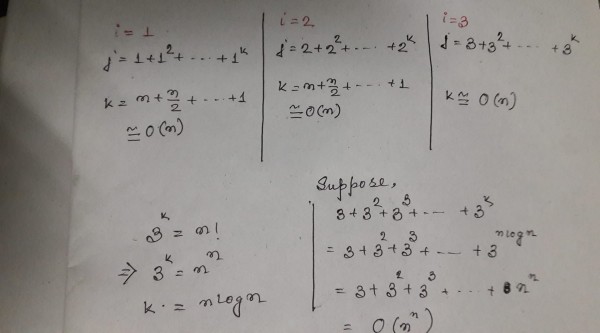 i = 1
j = 1 + 1² + ---- + 1ᵏ
k = n + n/2 + ---- + 1
≅ O(n)
i = 2
j = 2 + 2² + ---- + 2ᵏ
k = n + n/2 + ---- + 1
≅ O(n)
i = 3
j = 3 + 3² + ---- + 3ᵏ
k ≅ O(n)
3ᵏ = n!
⇒ 3ᵏ = nⁿ
k = n log n
Suppose,
3 + 3² + 3³ + ---- + 3ᵏ
= 3 + 3² + 3³ + ---- + 3ⁿ ˡᵒᵍ ⁿ
= 3 + 3² + 3³ + ---- + nⁿ
= O(nⁿ)